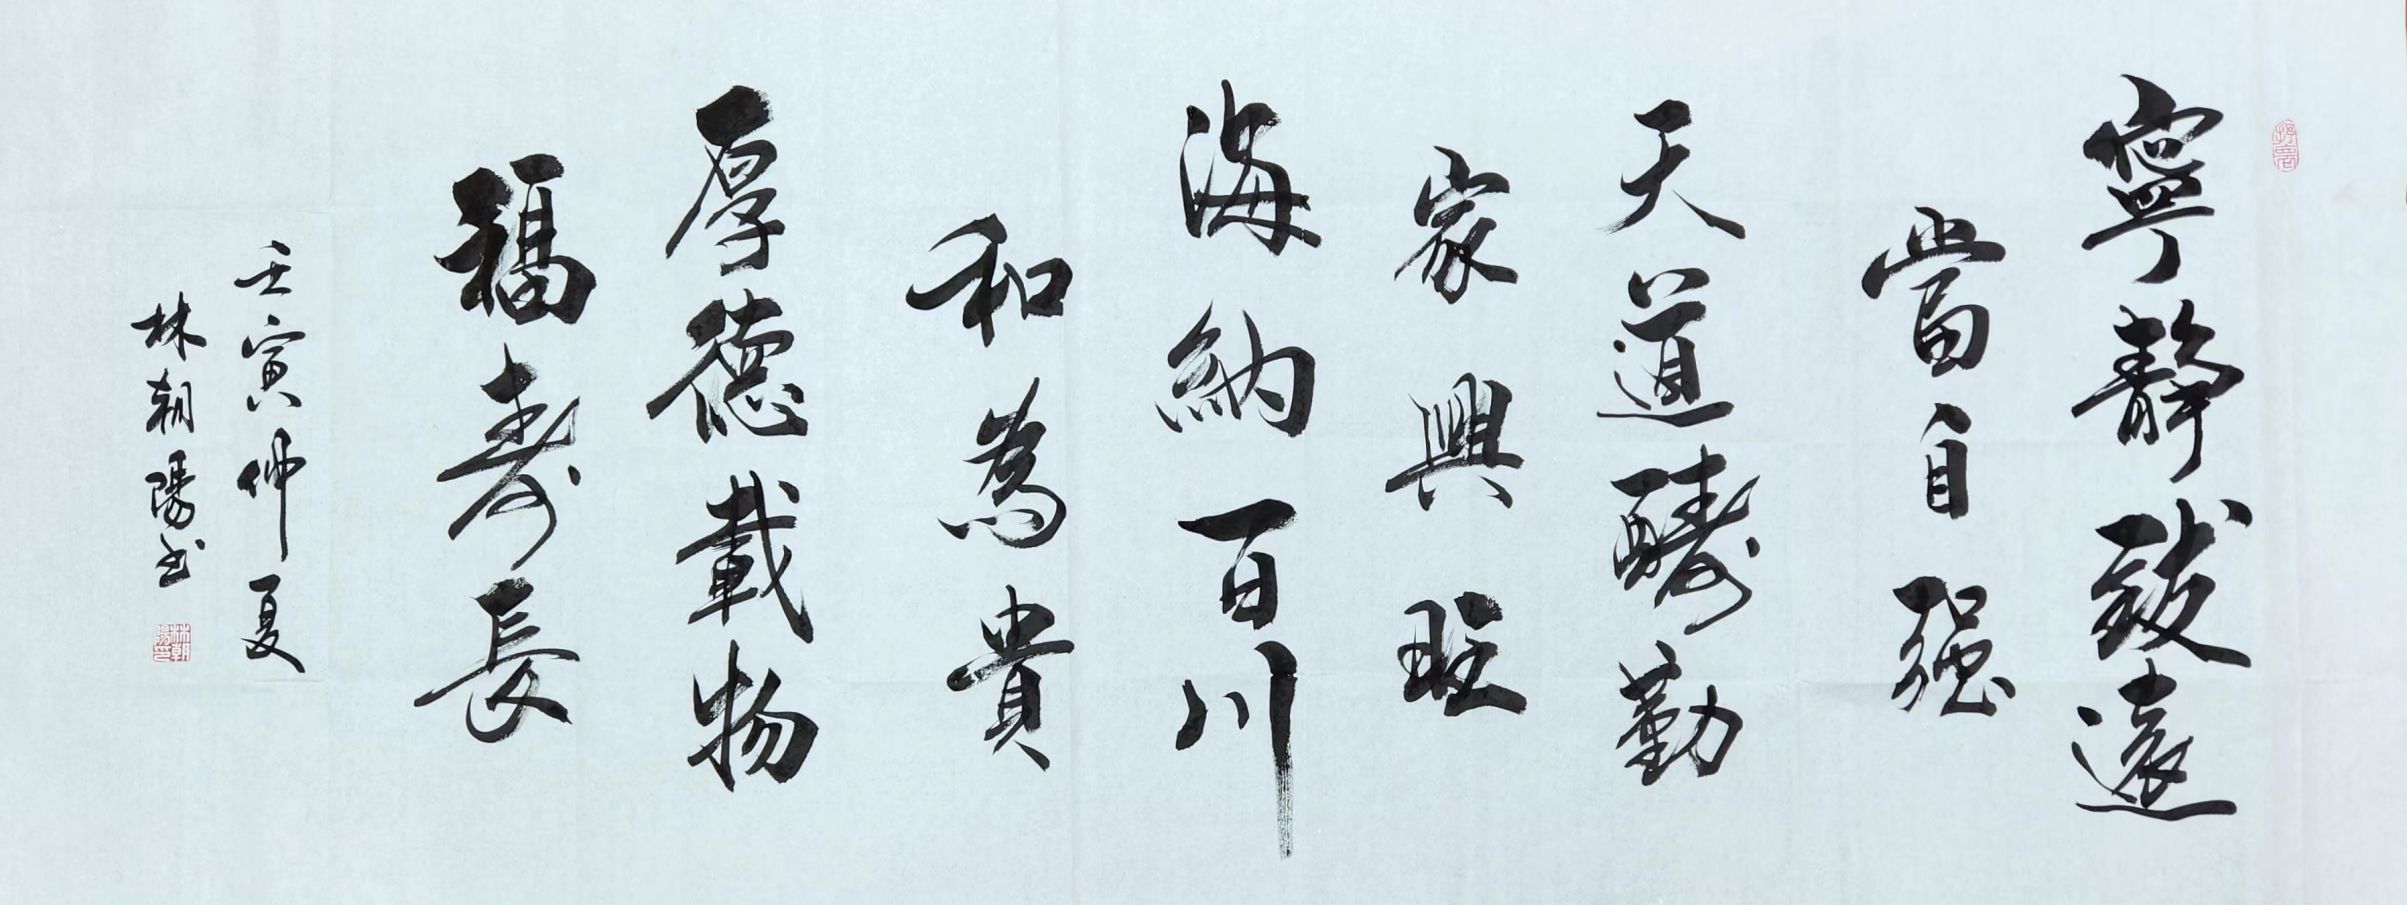 寧靜致遠
當自强
天道酬勤
家興旺
海納百川
和為貴
厚德載物
福寿長
壬寅仲夏
林朝陽书
林朝陽印